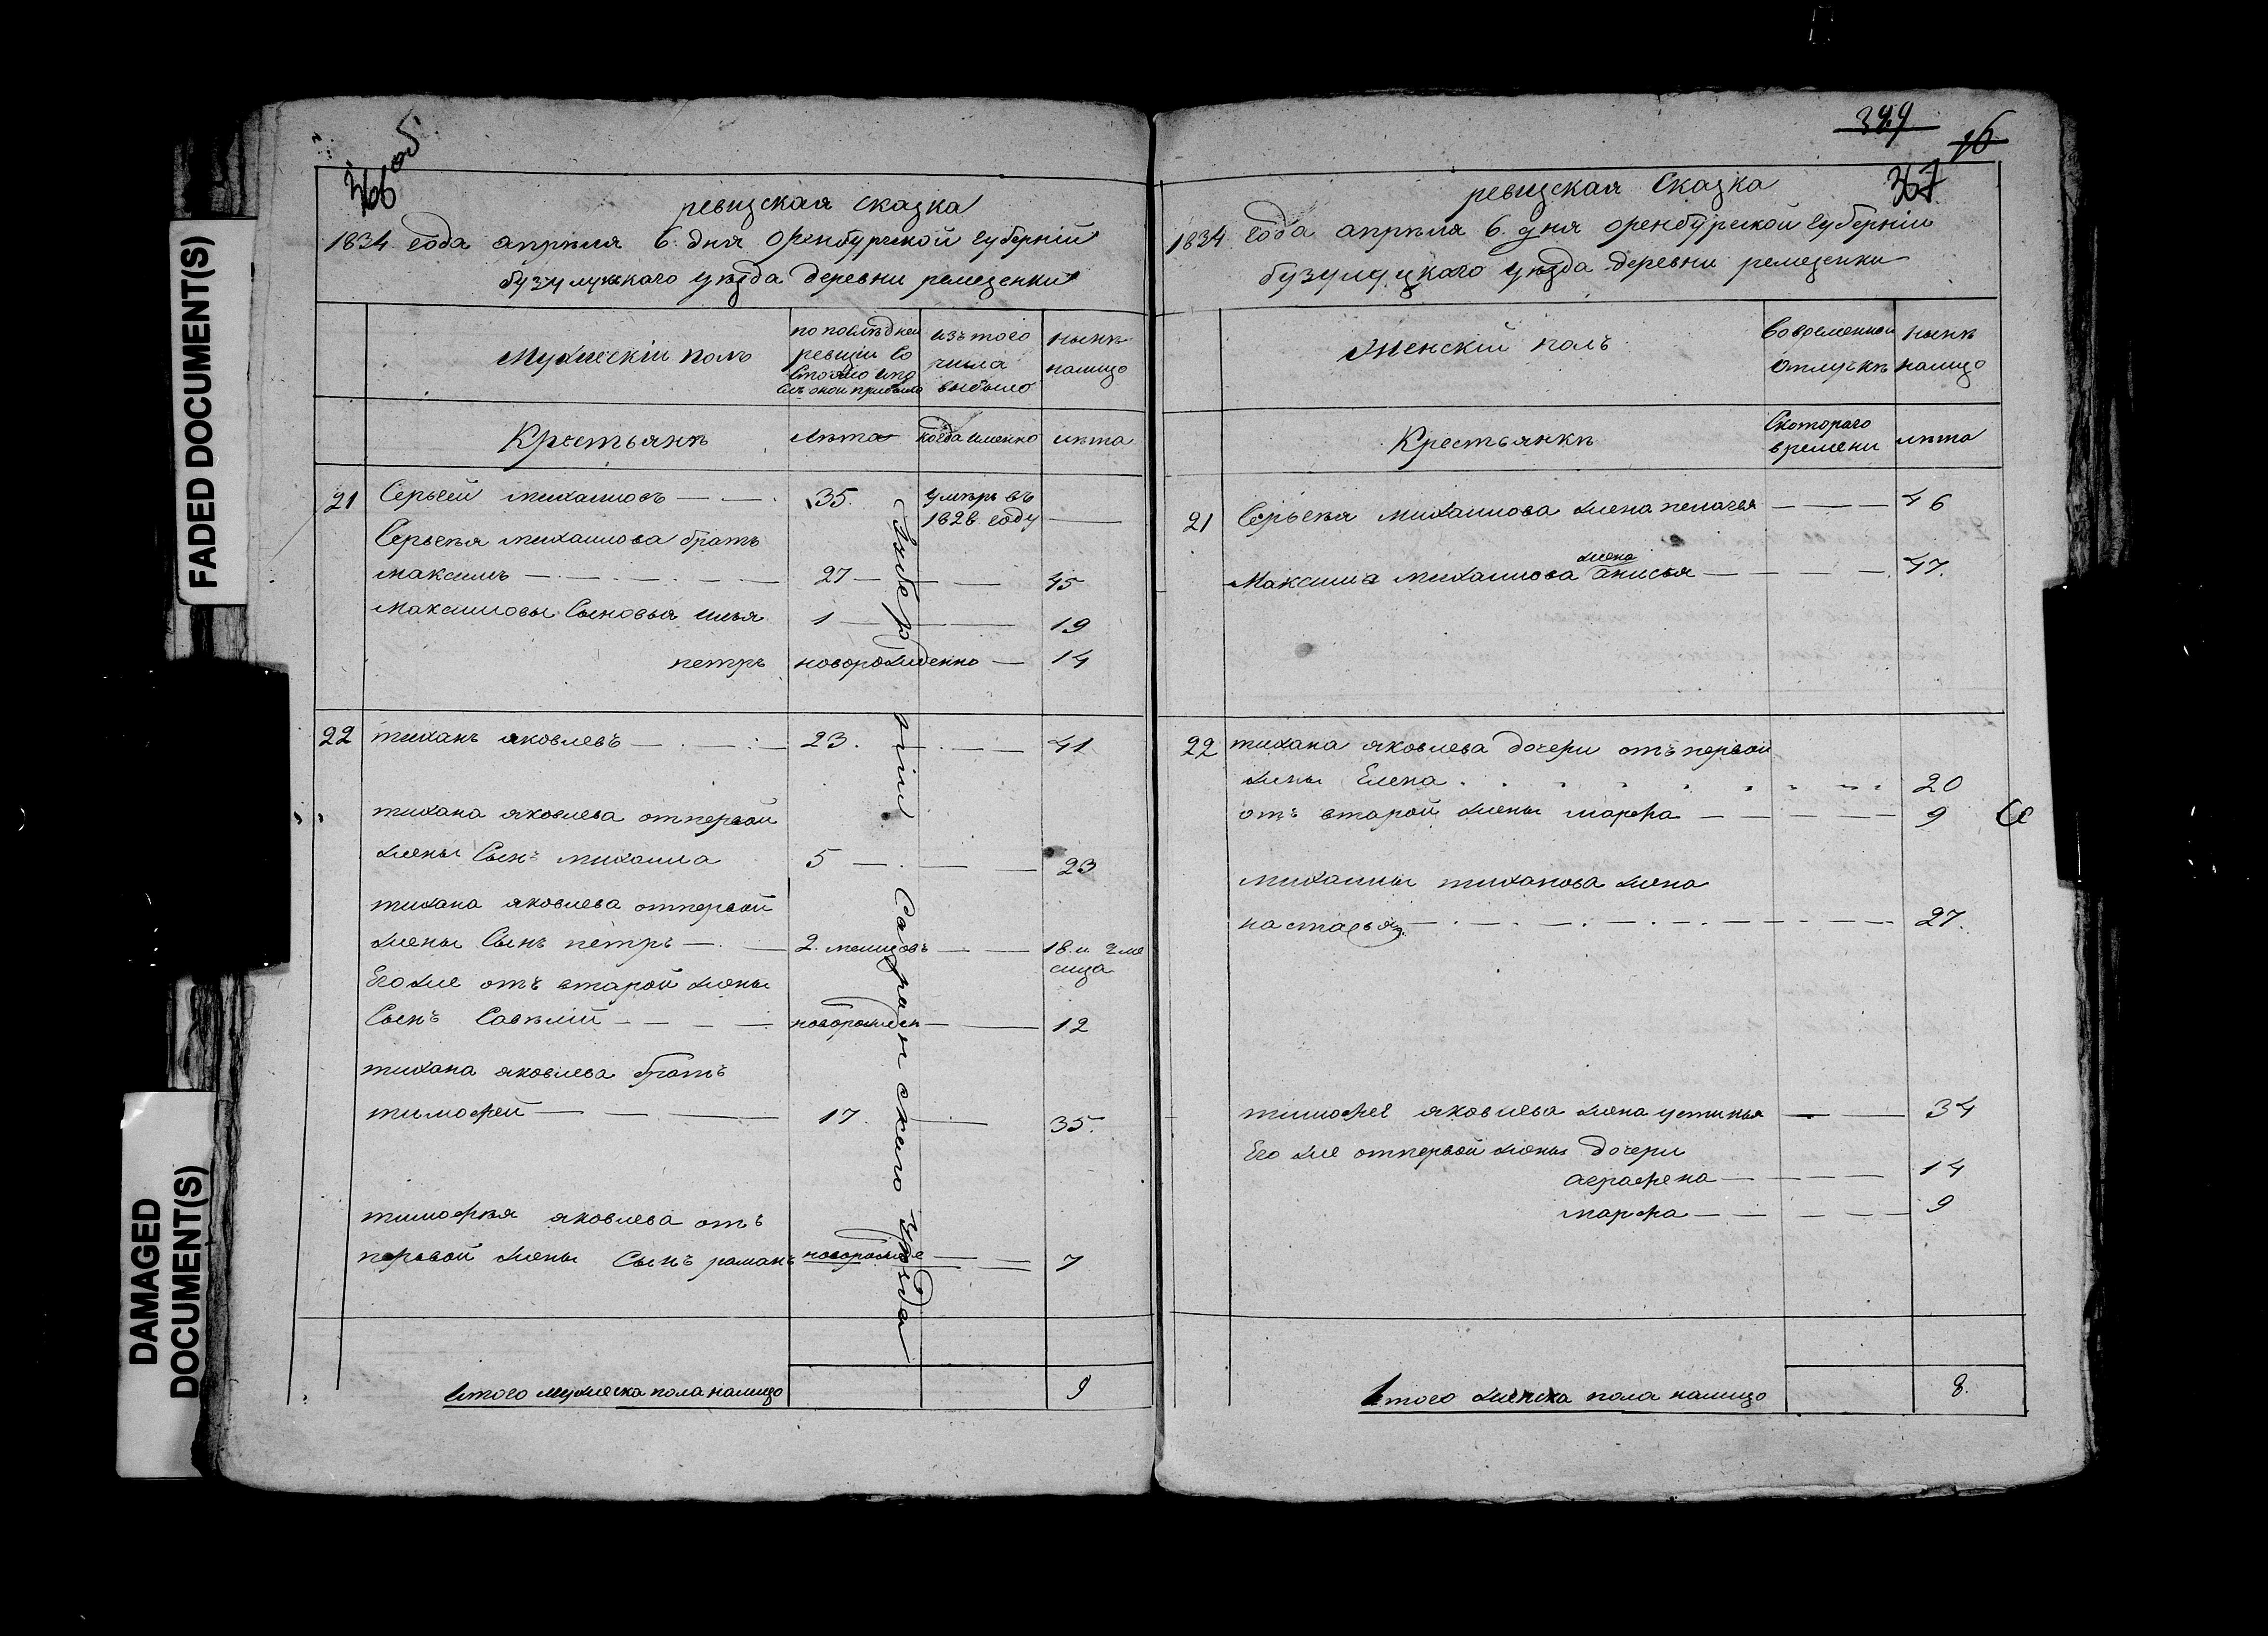 FADED DOCUMENT(S)
DAMAGED
DOCUMENT(S)
366 об
ревизская сказка
1834 года апреля 6 дня оренбургской губернии
бузулуцкаго уѣзда деревни ремезенки
Мужескій полъ
по последней
ревизіи со
стояло и по
слѣ оной прибыло
изъ того
числа
выбыло
нынѣ
налицо
Крестьянѣ
лѣта
когда именно
лѣта
21 Сергей михаиловъ 35. умѣръ въ
1828 году
Сергѣя михаилова братъ
максимъ 27 45
Максимовы Сыновья илья 1 19
петръ новорожденно 14
22 тиханъ яковлевъ 23. 41
тихана яковлева отпервой
жены Сынъ михаила 5 23
тихана яковлева отпервой
жены Сынъ петръ 2. месицовъ 18 и 2 ме
сица
Его же отъ второй жены
Сынъ Савѣлій новорожден 12
тихана яковлева братъ
тимофей 17. 35.
тимофѣя яковлева отъ
первой жены Сынъ раманъ новорожде 7
Саранскаго уѣзда
Итого мужеска пола налицо 9
399
16
367
ревизская Сказка
1834 года апрѣля 6. дня оренбургской губерніи
бузулуцкаго уѣзда деревни ремезенки
Женскій полъ
Вовременной
отлучкѣ
нынѣ
налицо
Крестьянкѣ
Скотораго
времени
лѣта
21 Сергѣя михаилова жена пелагея 46
жена
Максима михаилова анисья 47.
22 тихана яковлева дочери отъ первой
жены Елена 20
отъ второй жены марфа 9
михаилы тиханова жена
настасья 27.
тимофее яковлева жена устинья 34
Его же отпервой жены дочери
аграфена 14
марфа 9
Итого женска пола налицо 8.